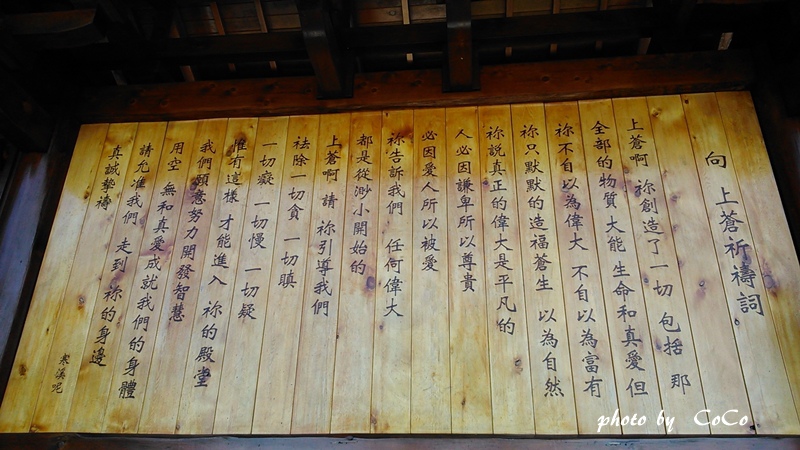 向 上蒼祈禱詞。
上蒼啊 祢創造了一切 包括 那
全部的物質 大能 生命和真愛 但
祢不自以為偉大 不自以為富有
祢只 默默的造福蒼生 以為自然
祢說真正的偉大是平凡的
人必因謙卑所以尊貴
必因愛人所以被愛
祢告訴我們 任何偉大
都是從渺小開始的
上蒼啊 請 祢引導我們
祛除一切貪 一切瞋
一切癡 一切慢 一切疑
惟有這樣 才能進入 祢的殿堂
我們願意努力開發智慧
用空 無和真愛成就我們的身體
請允准我們 走到 祢的身邊
真誠摯禱
photo by CoCo